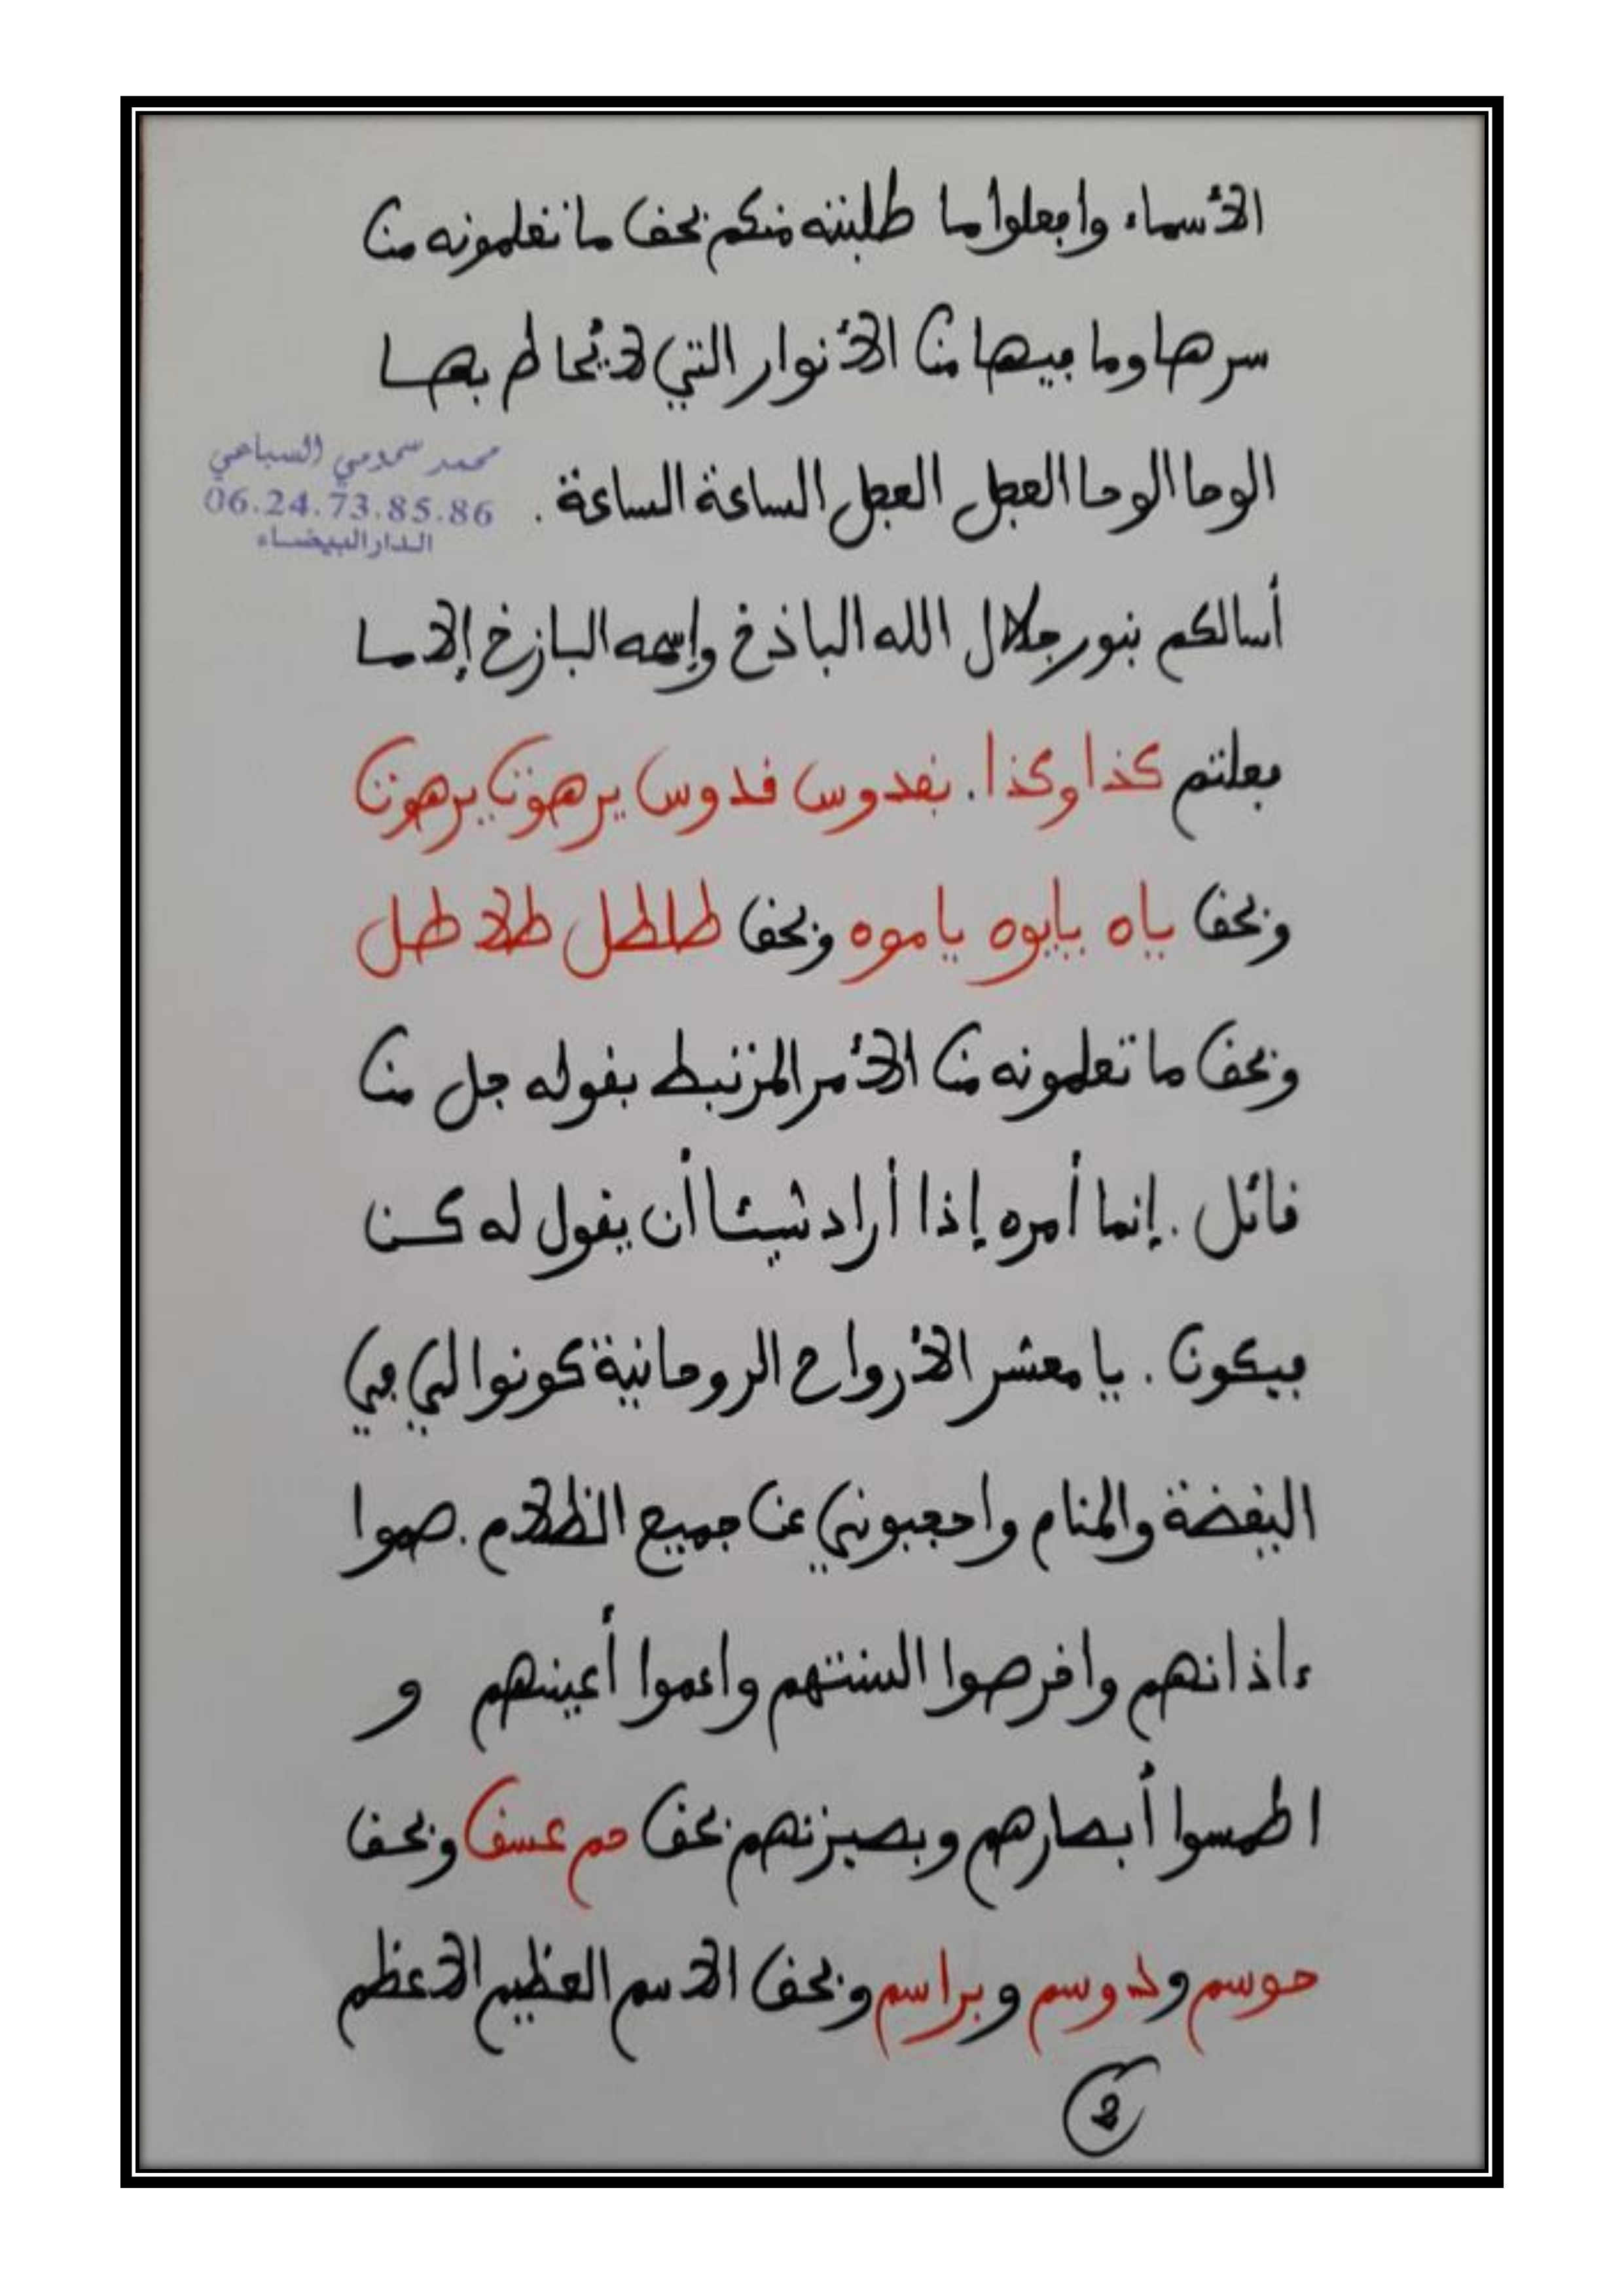 الأسماء وافعلوا ما طلبته منكم بحق ما تعلمونه من
سرها وما فيها من الأنوار التي لا يُحاط بها
الوحا الوحا العجل العجل الساعة الساعة .
محمد سحومي السباعي
06.24.73.85.86
الدار البيضاء
أسالكم بنور جلال الله الباذخ وإسمه البازخ إلا ما
فعلتم كذا وكذا . بقدوس قدوس يرهون يرهون
وبحق ياه يايوه ياموه وبحق طلطل طلا طل
وبحق ما تعلمونه من الأمر المرتبط بقوله جل من
قائل . إنما أمره إذا أراد شيئا أن يقول له كن
فيكون . يا معشر الأرواح الروحانية كونوا لي في
اليقضة والمنام واحجبوني عن جميع الظلام . صموا
ءاذانهم واقرصوا السنتهم واعموا أعينهم و
اطمسوا أبصارهم وبصيرتهم بحق حم عسق وبحق
حوسم ودوسم وبراسم وبحق الاسم العظيم الاعظم
2